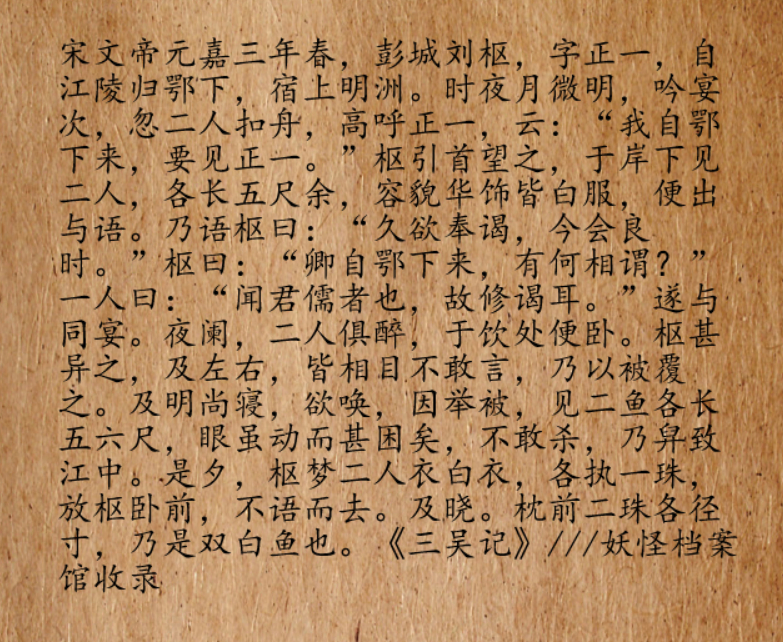 宋文帝元嘉三年春，彭城刘枢，字正一，自
江陵归鄂下，宿上明洲。时夜月微明，吟宴
次，忽二人扣舟，高呼正一，云：“我自鄂
下来，要见正一。”枢引首望之，于岸下见
二人，各长五尺余，容貌华饰皆白服，便出
与语。乃语枢曰：“久欲奉谒，今会良
时。”枢曰：“卿自鄂下来，有何相谓？”
一人曰：“闻君儒者也，故修谒耳。”遂与
同宴。夜阑，二人俱醉，于饮处便卧。枢甚
异之，及左右，皆相目不敢言，乃以被覆
之。及明尚寝，欲唤，因举被，见二鱼各长
五六尺，眼虽动而甚困矣，不敢杀，乃舁致
江中。是夕，枢梦二人衣白衣，各执一珠，
放枢卧前，不语而去。及晓。枕前二珠各径
寸，乃是双白鱼也。《三吴记》///妖怪档案
馆收录